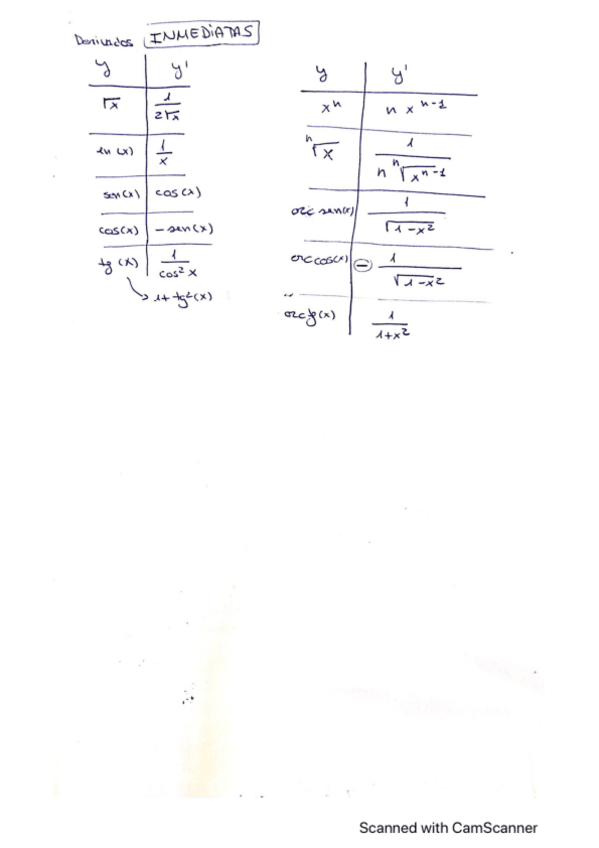 Derivadas INMEDIATAS
y | y'
√x | 1/(2√x)
ln(x) | 1/x
sen(x) | cos(x)
cos(x) | -sen(x)
tg(x) | 1/(cos² x)
↘ 1+tg²(x)
y | y'
xⁿ | n xⁿ⁻¹
ⁿ√x | 1/(n ⁿ√(xⁿ⁻¹))
arc sen(x) | 1/√(1-x²)
arc cos(x) | ⊖ 1/√(1-x²)
arc tg(x) | 1/(1+x²)
Scanned with CamScanner